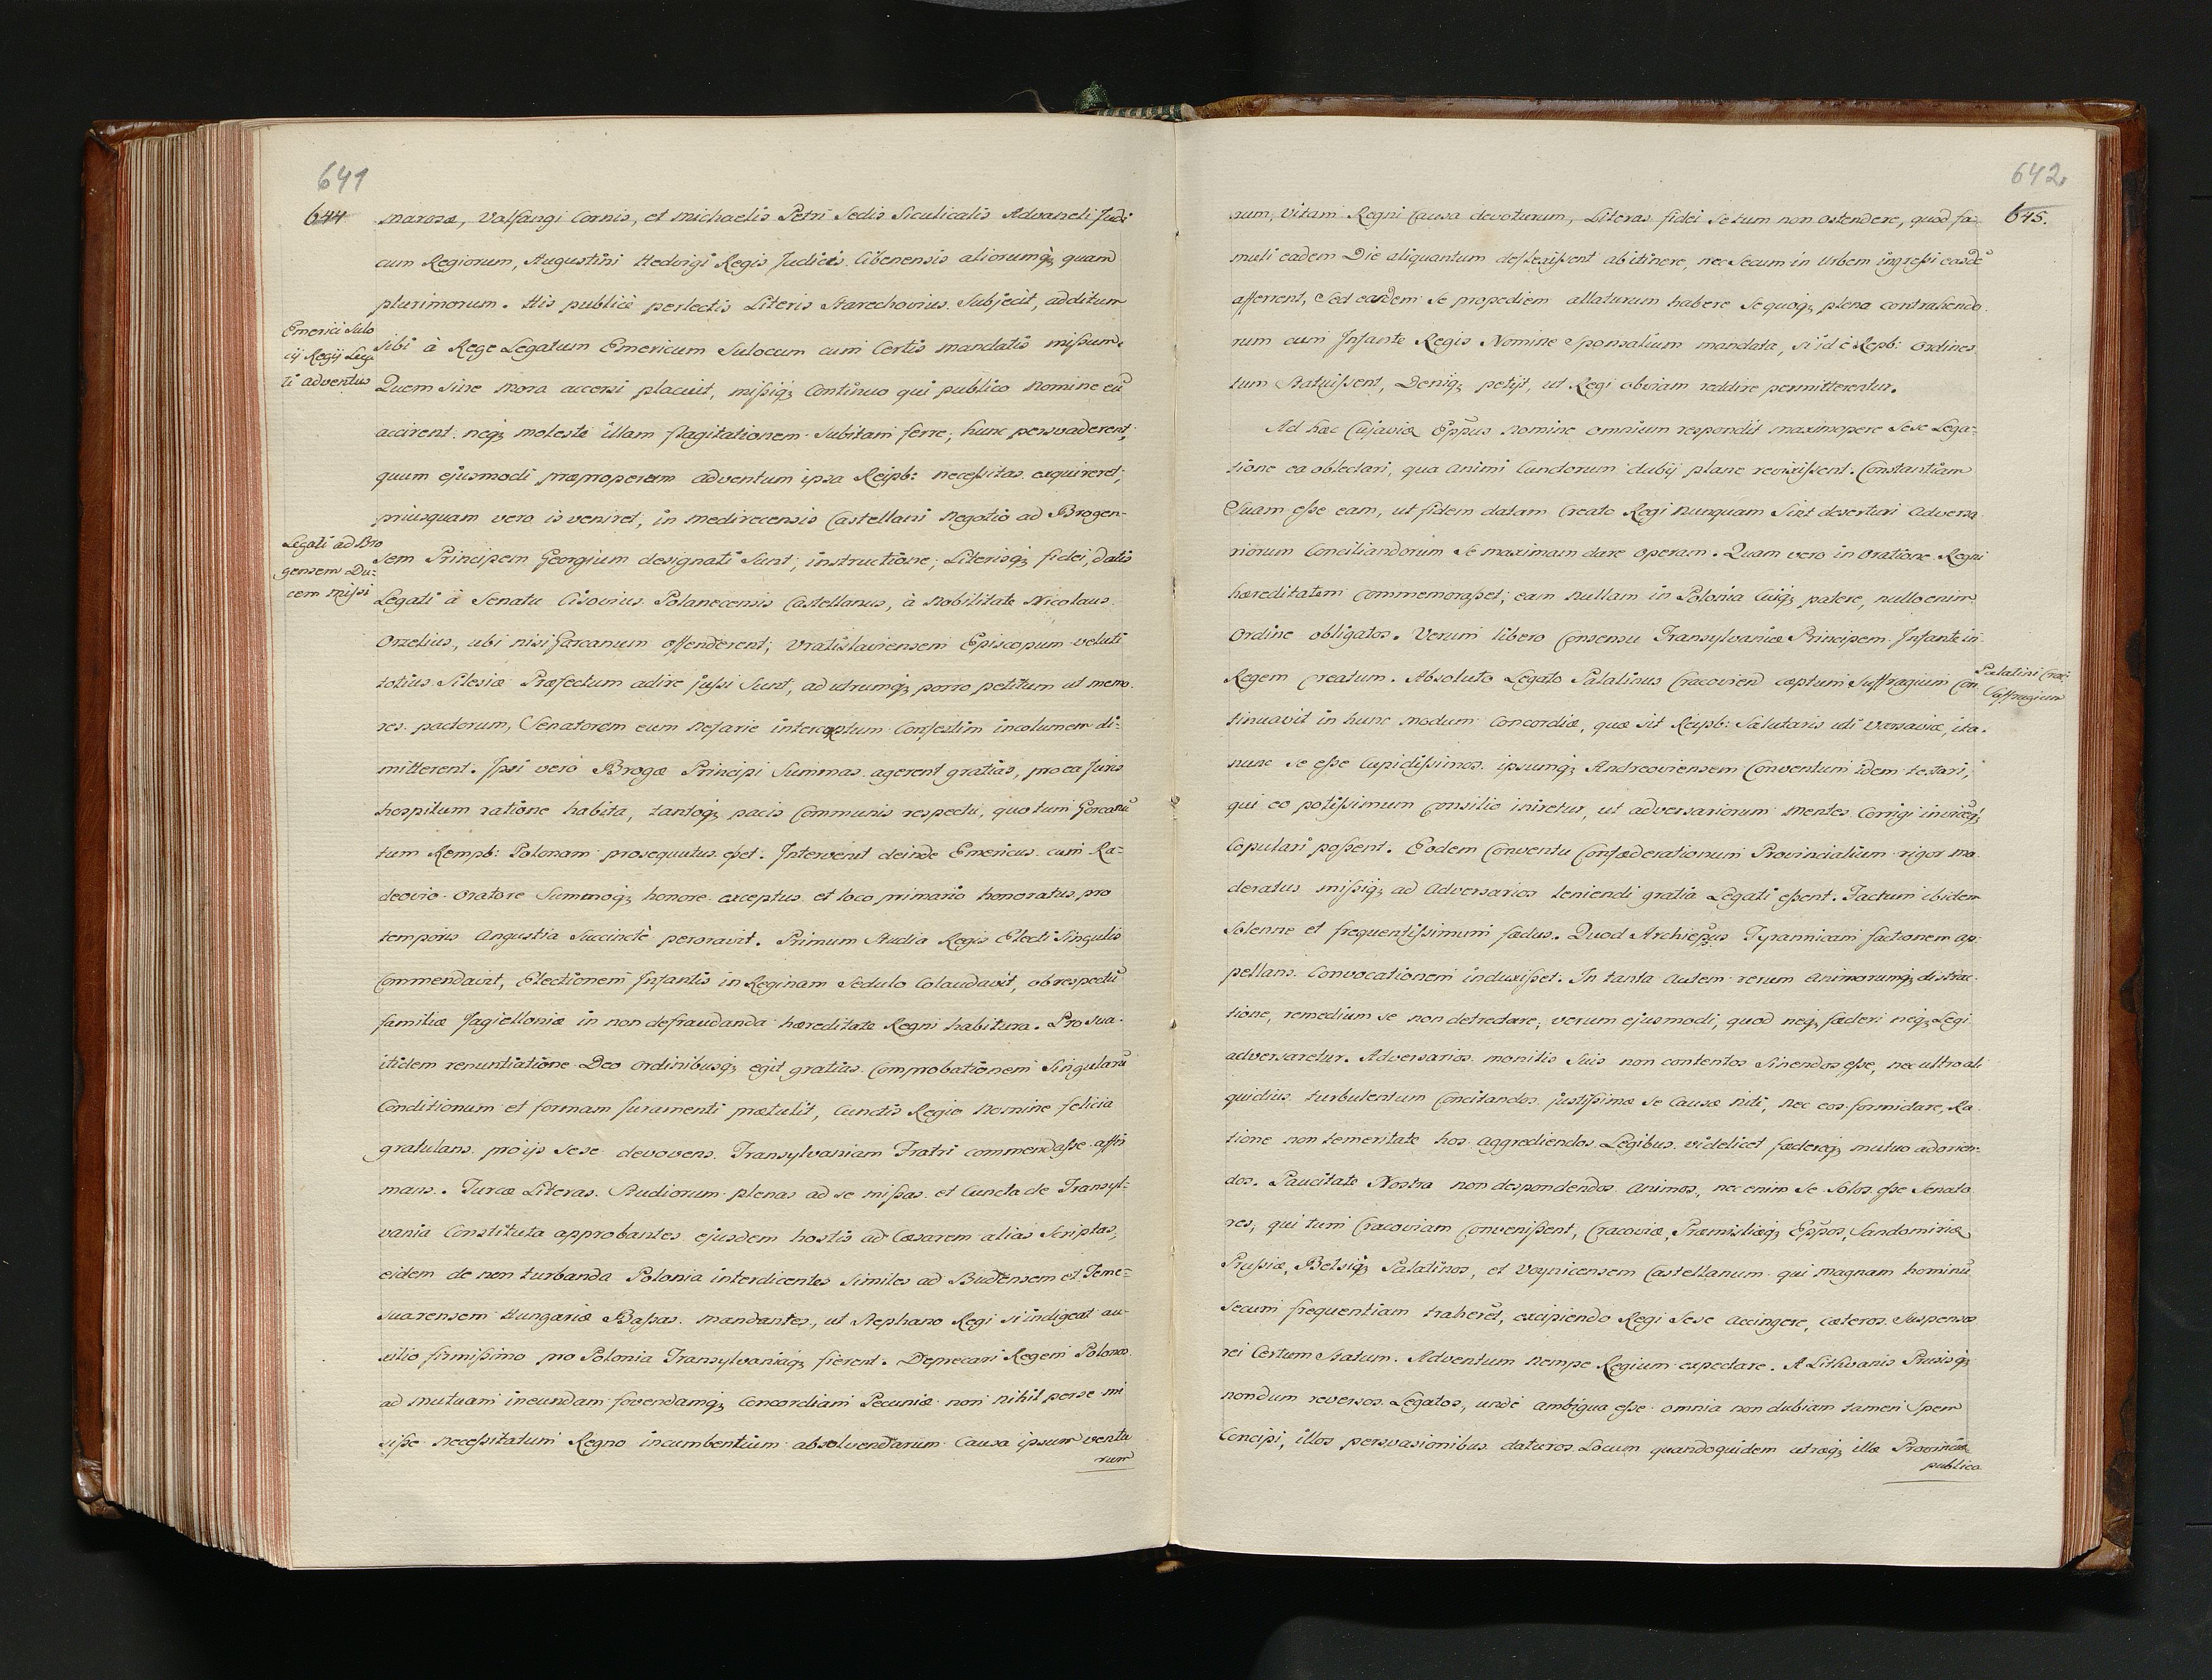 641
644
marosæ, Valfangi Cornis, et Michaelis Petri Sedis Siculicalis Advaneli Judi
cum Regiorum, Augustini Hedvigi Regis Judicis Cibenensis aliorumq; quam
plurimorum. His publicè perlectis Literis Starechovius Subjecit, additum
Emerici Sulo
cij Regij Lega
ti adventus
sibi à Rege Legatum Emericum Sulocum cum Certis mandatis missum.
Quem sine mora accersi placuit, missiq; Continuo qui publico Nomine eũ
accirent: neq; moleste illam flagitationem Subitam ferre, hunc persvaderent,
quum ejusmodi præproperum adventum ipsa Reipb: necessitas exquireret;
priusquam vero is veniret, in Medirecensis Castellani Negotio ad Brogen-
Legati ad Bro
gensem Du-
cem missi
sem Principem Georgium designati Sunt, instructione, Literisq; fidei, datis
Legati à Senatu Cisovius Polanecensis Castellanus, à Nobilitate Nicolaus
Orzelius, ubi nisi Gorcanum offenderent; Vratislaviensem Episcopum veluti
totius Silesiæ Præfectum adire jussi Sunt, ad utrumq; porro petitum ut memo
res pactorum, Senatorem eum Nefarie interceptum Confestim incolumem di-
mitterent. Ipsi verò Brogæ Principi Summas agerent gratias, pro ea Juris
hospitum ratione habita, tantoq; pacis Communis respectu, quo tum Gorcanũ
tum Rempb: Polonam prosequutus esset. Intervenit deinde Emericus cum Ra-
deovio Oratore Summoq; honore exceptus et loco primario honoratus pro
temporis Angustia Succinctè peroravit. Primum Studia Regis Electi Singulis
Commendavit, Electionem Infantis in Reginam Sedulo Colaudavit, ob respectũ
familiæ Jagielloniæ in non defraudanda hæreditate Regni habitura. Pro sua
itidem renuntiatione Deo Ordinibusq; egit gratias. Comprobationem Singularũ
Conditionum et formam Juramenti prætulit, Cunctis Regio Nomine felicia
gratulans pro ijs sese devovens. Transylvaniam Fratri commendasse affir
mans. Turcæ Literas Studiorum plenas ad se missas et Cuncta de Transyl-
vania Constituta approbantes ejusdem hostis ad Cæsarem alias Scriptas,
eidem de non turbanda Polonia interdicentes Similes ad Budensem et Teme-
suarensem Hungariæ Bassas mandantes, ut Stephano Regi si indigeat au-
xilio firmissimo pro Polonia Transylvaniaq; fierent. Deprecari Regem Polonos
ad mutuam ineundam fovendamq; Concordiam Pecuniæ non nihil per se mi
sisse necessitatum Regno incumbentium absolvendarum Causa ipsum ventu
rum
642.
645.
rum, Vitam Regni Causa devoturum, Literas fidei Se tum non ostendere, quod fa-
muli eadem Die aliquantum deflexissent ab itinere, nec Secum in Urbem ingressi easdẽ
afferrent, Sed eardem Se propediem allaturum habere Sequoq; plena contrahendo
rum cum Infante Regis Nomine Sponsalium mandata, si id è Repb: Ordines
tum Statuissent, Deniq; petijt, ut Regi obviam reddire permitterentur.
Ad hæc Cujaviæ Epp̃us Nomine Omnium respondit maximopere Sese Lega-
tione ea oblectari, qua Animi Cunctorum dubij plane revixissent. Constantiam
Suam esse eam, ut fidem datam Creato Regi Nunquam Sint deserturi Adversa
riorum Conciliandorum Se maximam dare Operam. Quam vero in Oratione Regni
hæreditatem Commemorasset; eam nullam in Polonia Cuiq; patere, nullo enim
Ordine obligatos. Verum libero Consensu Transylvaniæ Principem Infante in
Palatini Crac:
Suffragium
Regem Creatum. Absoluto Legato Palatinus Cracovien̄ cæptum Suffragium Con
tinuavit in hunc modum Concordiæ, quæ sit Reipb: Salutaris uti Varsaviæ, ita
nunc Se esse Cupidissimos ipsumq; Andreoviensem Conventum idem testari,
qui eo potissimum Consilio iniretur, ut adversariorum mentes Corrigi invicẽq;
Copulari possent. Eodem Conventu Confæderationum Provincialium rigor mo
deratus missiq; ad Adversarios leniendi gratia Legati essent. Factum ibidem
Solenne et frequentissimum fædus. Quod Archiep̃us Tyrannicam factionem ap-
pellans Convocationem induxisset. In tanta Autem rerum Animorumq; distrac-
tione, remedium se non detrectare, verum ejusmodi, quod neq; fæderi neq; Legi
adversaretur. Adversarios monitis Suis non contentos Sinendos esse, nec ultro ali
quidius turbulentum Concitandos justissimæ Se Causæ niti, Nec eos formidare, Ra
tione non temeritate hos aggrediendos Legibus videlicet fædereq; mutuo adorien-
dos. Paucitate Nostra non despondendos Animos, nec enim Se Solos esse Senato
res, qui tum Cracoviam Convenissent, Cracoviæ, Præmisliæq; Epp̃os, Sandomiriæ
Prussiæ, Belsiq; Palatinos, et Voynicensem Castellanum qui magnam hominũ
Secum frequentiam traheret, excipiendo Regi Sese Accingere, cæteros Suspensos
rei Certum Statum. Adventum Nempe Regium expectare. A Lithvanis Prussisq;
nondum reversos Legatos, unde ambigua esse omnia non dubiam tamen Spem
Concipi, illos persvasionibus daturos Locum quandoquidem utræq; illæ Provinciæ
publico